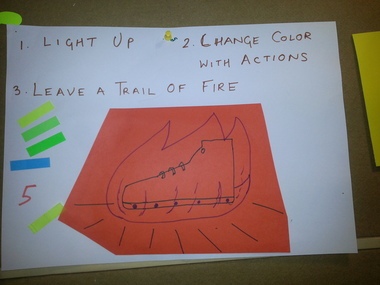 1. LIGHT UP
2. CHANGE COLOR
WITH ACTIONS
3. LEAVE A TRAIL OF FIRE
5